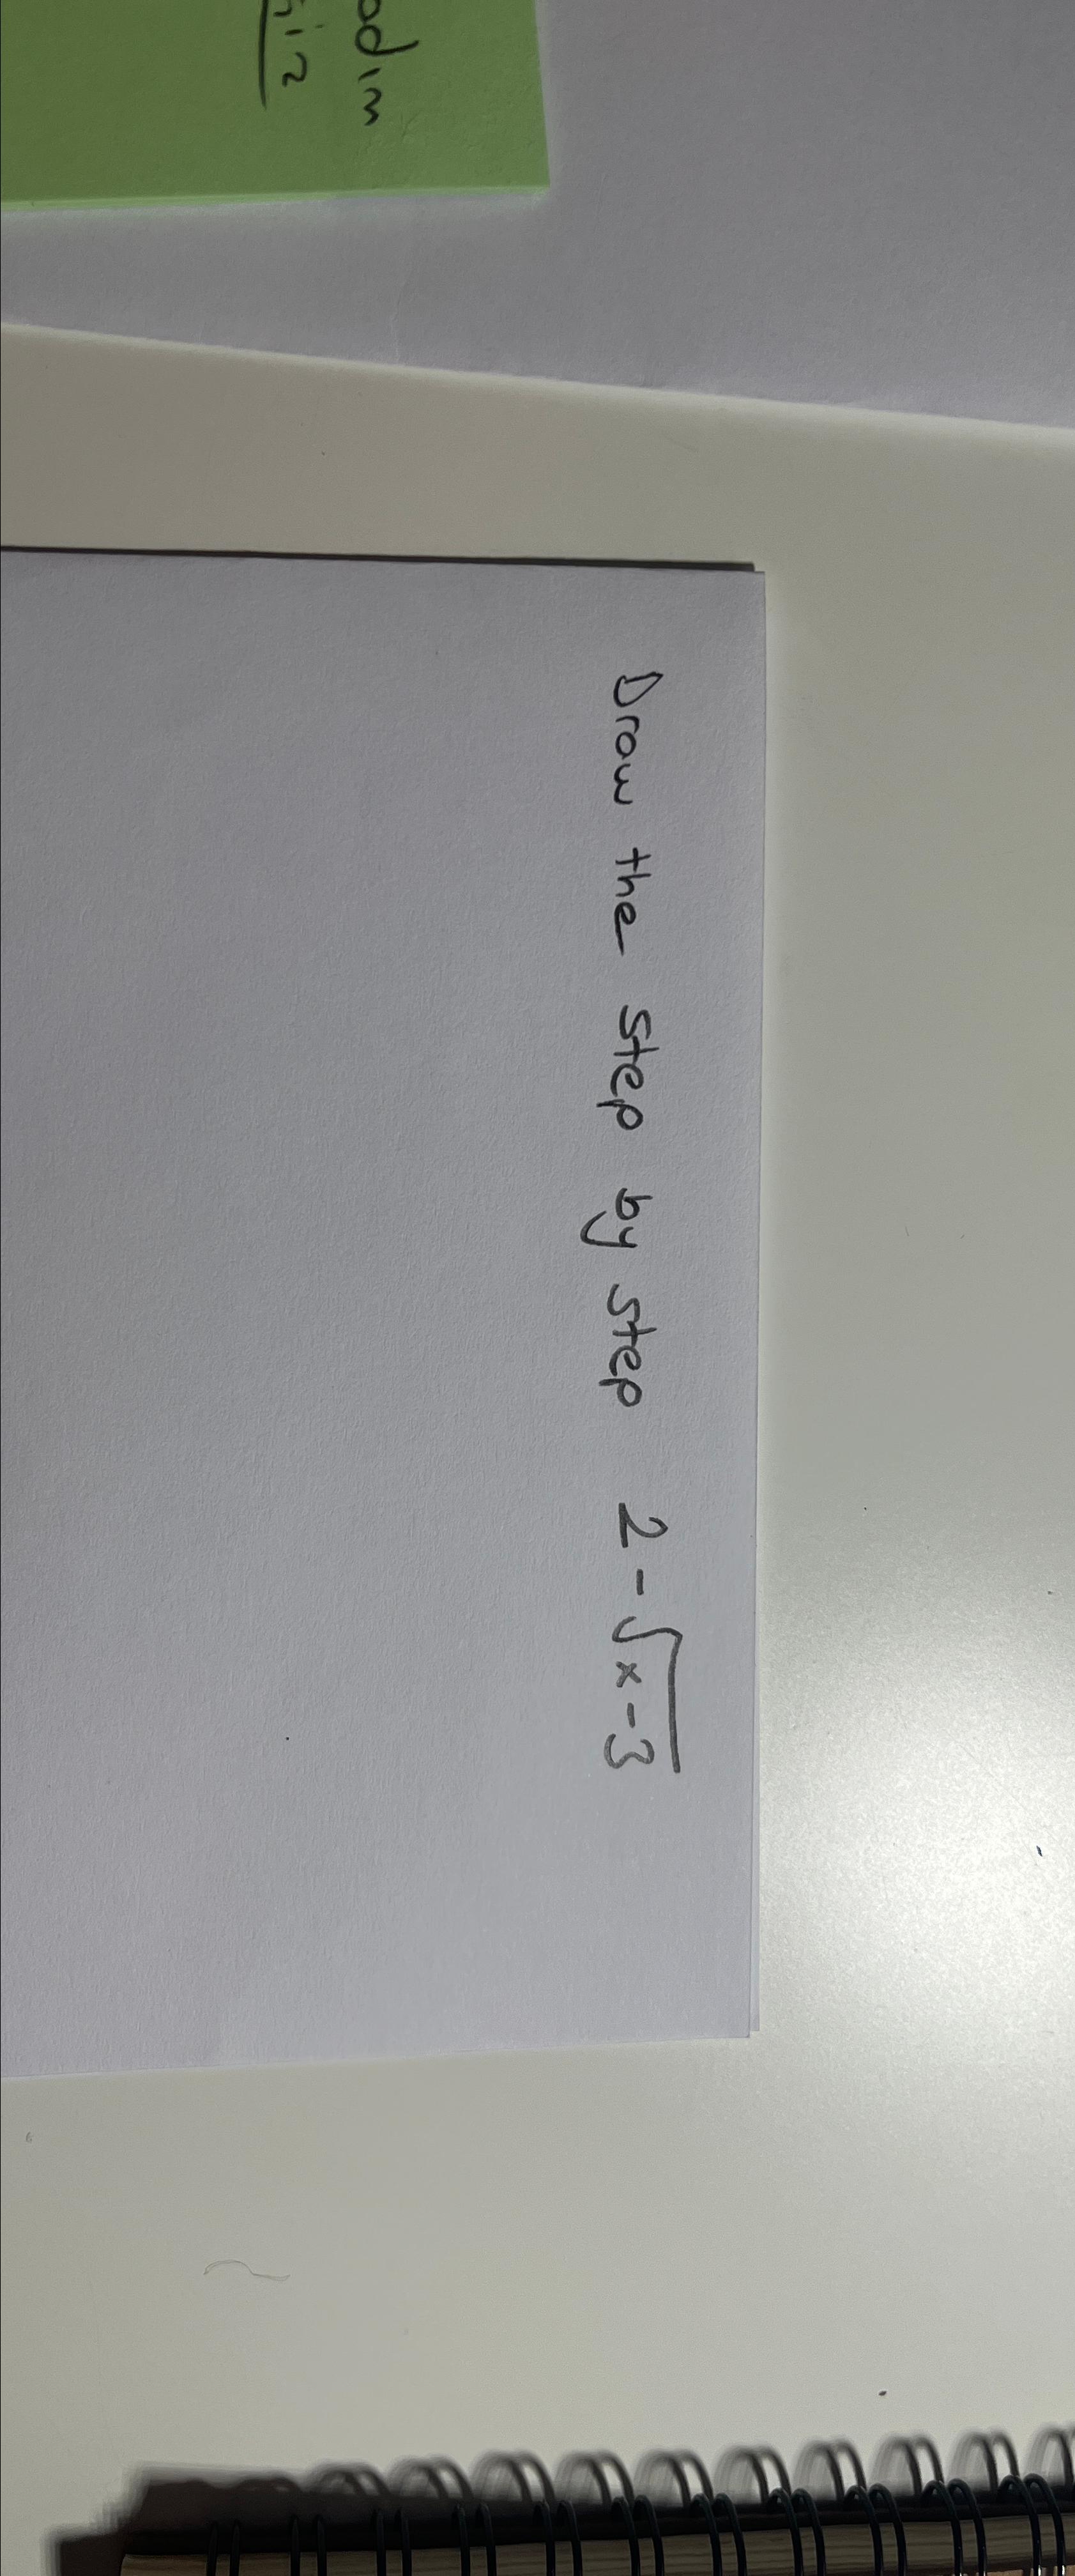 Draw the step by step 2 - √x - 3